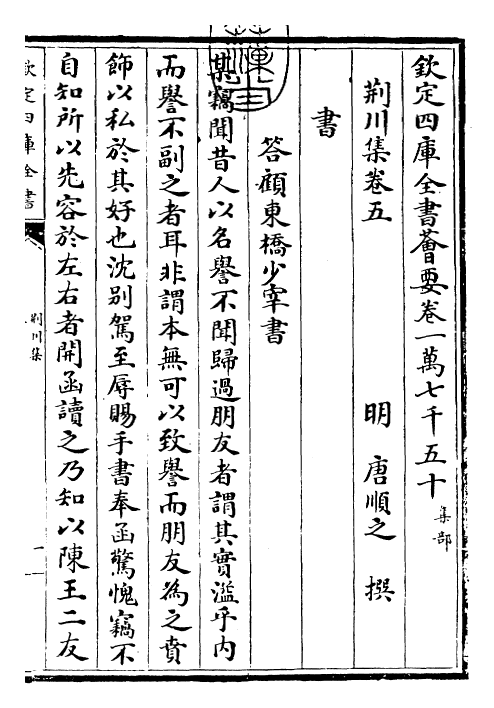 欽定四庫全書薈要卷一萬七千五十 集部
荆川集卷五 明 唐順之 撰
書
答顧東橋少宰書
某竊聞昔人以名譽不聞歸過朋友者謂其實溢乎内
而譽不副之者耳非謂本無可以致譽而朋友為之賁
飾以私於其好也沈别駕至辱賜手書奉函驚愧竊不
自知所以先容於左右者開函讀之乃知以陳王二友
欽定四庫全書
荆川集
一